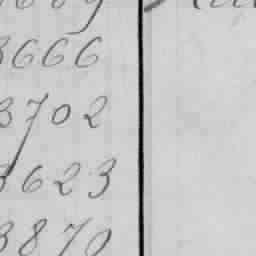 3666
3702
3623
3870